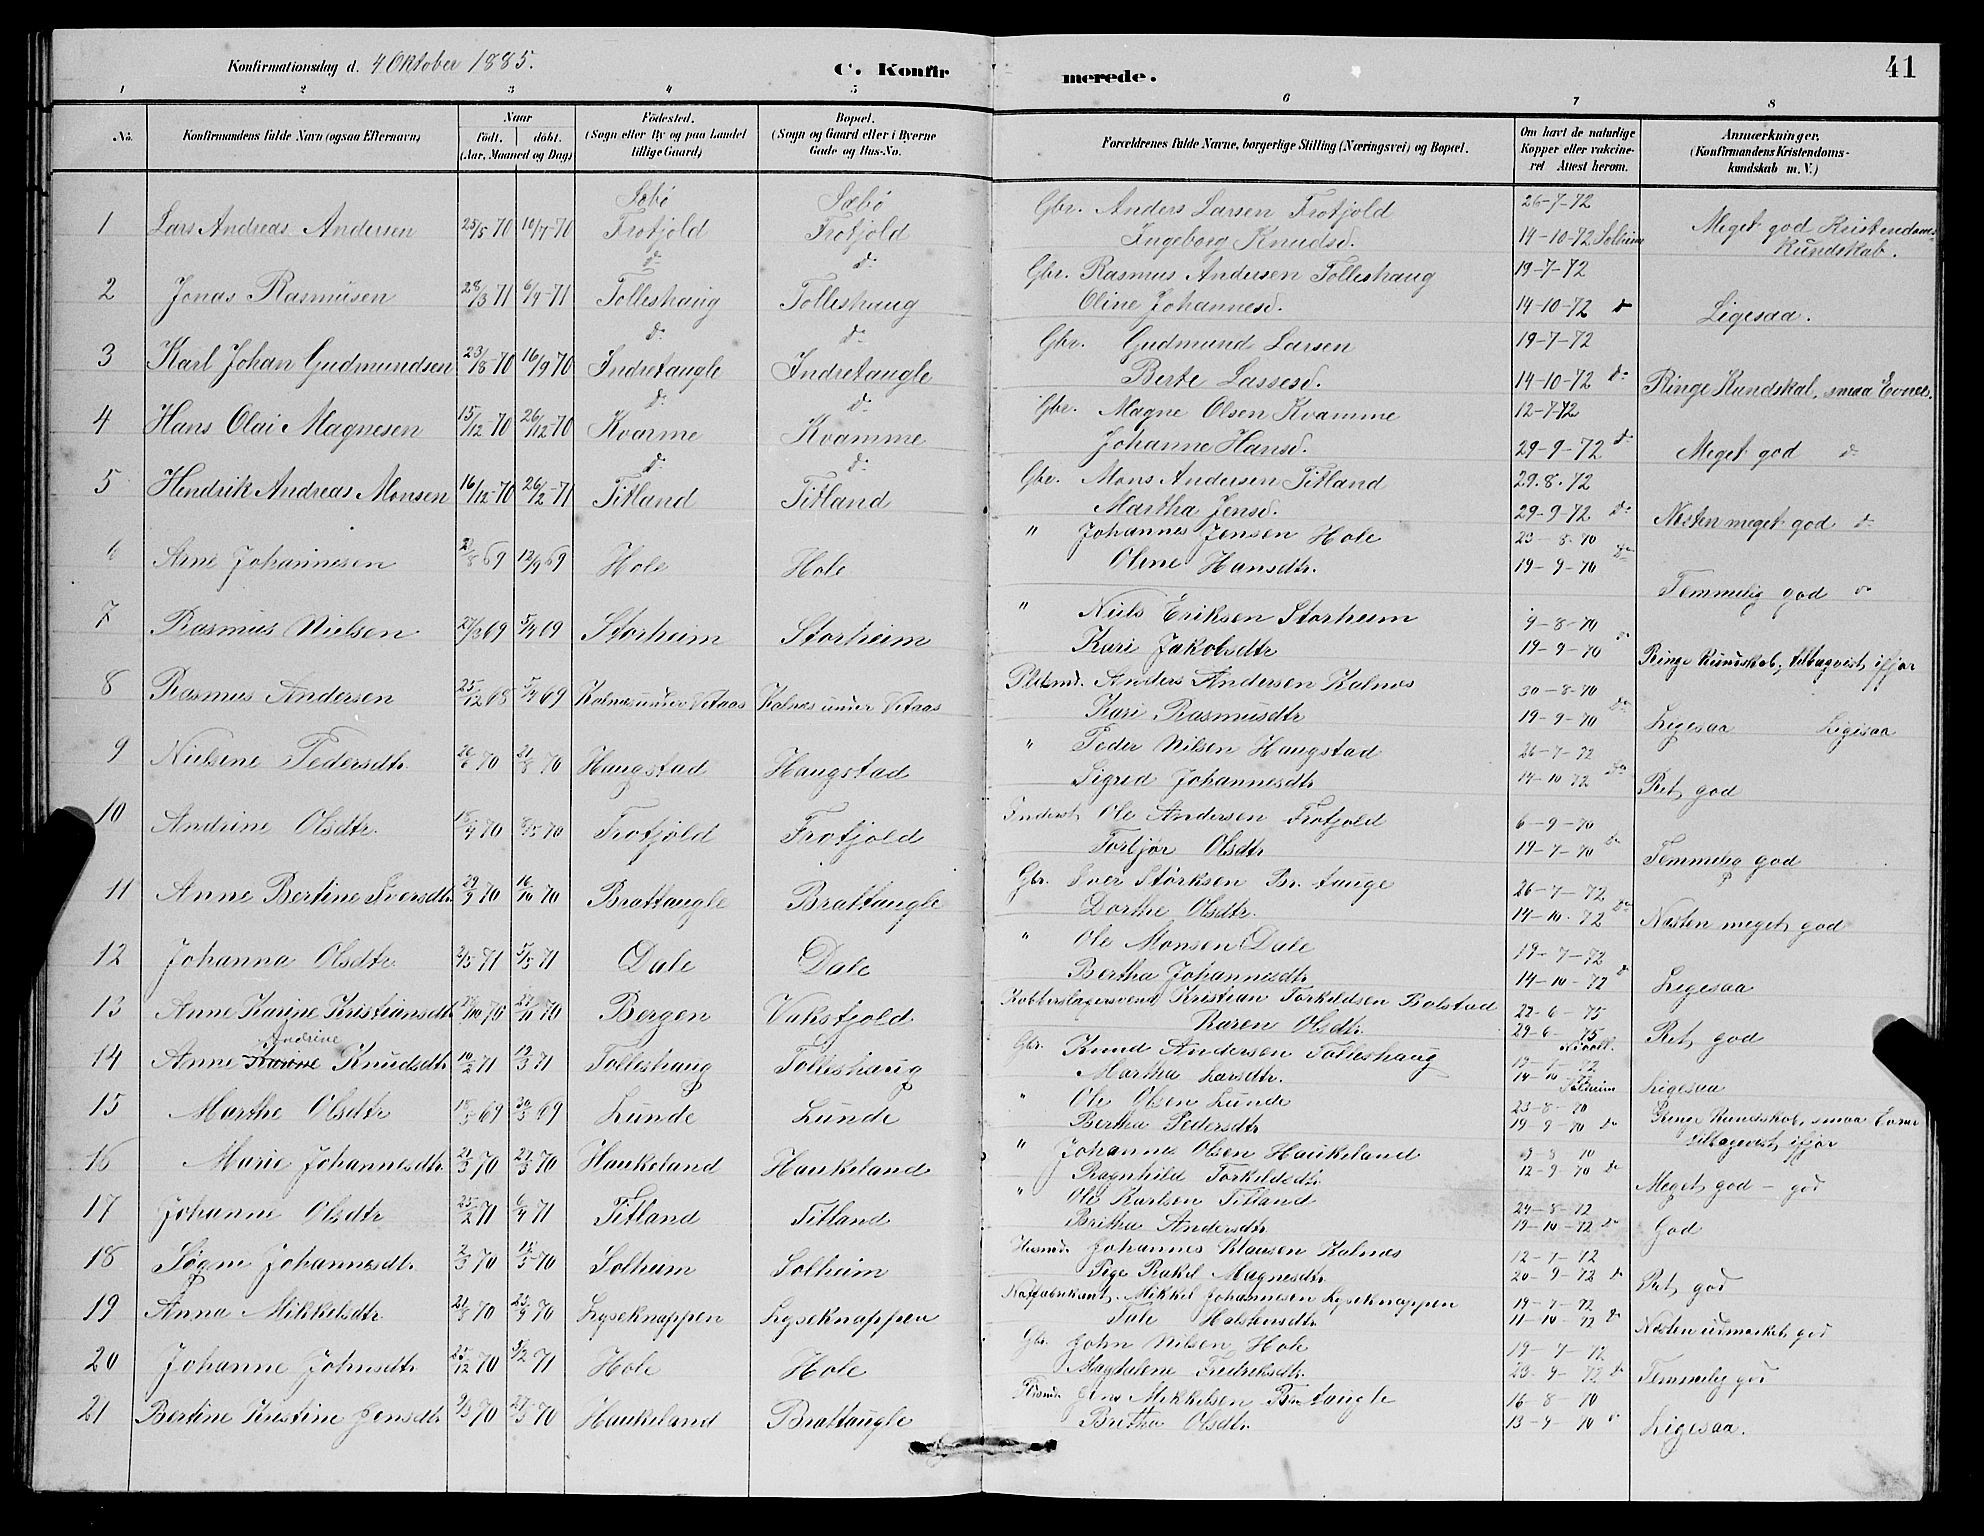 Konfirmationsdag d. 4 Oktober 1885.
C. Konfirmerede.
41
1 2 3 4 5 6 7 8
No.
Konfirmandens fulde Navn (ogsaa Efternavn)
Naar
født. døbt.
(Aar, Maaned og Dag)
Fødested.
(Sogn eller By og paa Landet tillige Gaard)
Bopæl.
(Sogn og Gaard eller i Byerne Gade og Hus-No.
Forældrenes fulde Navne, borgerlige Stilling (Næringsvei) og Bopæl.
Om havt de naturlige Kopper eller vakcineret Attest herom.
Anmærkninger.
(Konfirmandens Kristendomskundskab m. V.)
Sæbø Sæbø Gbr. Anders Larsen Frotjold 26-7-72
1 Lars Andreas Andersen 25/5 70 10/7-70 Frotjold Frotjold Ingeborg Knudsd. 14-10-72 Solheim Meget god Kristendoms Kundskab.
d: d: Gbr. Rasmus Andersen Tolleshaug 19-7-72
2 Jonas Rasmusen 28/3 71 6/4-71 Tolleshaug Tolleshaug Oline Johannesd. 14-10-72 d Ligesaa.
d: d: Gbr. Gudmund Larsen 19-7-72
3 Karl Johan Gudmundsen 23/8-70 16/9 70 Indretaugle Indretaugle Berte Lassesd. 14-10-72 d: Ringe Kundskab, smaa Evner.
d: d: Gbr. Magne Olsen Kvamme 12-7-72
4 Hans Olai Magnesen 15/12 70 26/12-70 Kvamme Kvamme Johanne Hansd. 29-9-72 d: Meget god d:
d: d: Gbr. Mons Andersen Titland 29.8.72
5 Hendrik Andreas Monsen 16/12-70 26/2-71 Titland Titland Martha Jensd. 29-9-72 d: Næsten meget god d:
" Johannes Jensen Hole 23-8-70
6 Arne Johannesen 69 12/9 69 Hole Hole Olene Hansdtr. 19-9-70 do Temmelig god do
" Niels Eriksen Storheim 9-8-70
7 Rasmus Nielsen 27/3 69 5/4 69 Storheim Storheim Kari Jakobsdtr 19-9-70 do Ringe Kundskab, tilbagevist ifjor
Pldsmd. Anders Andersen Kalnes 30-8-70
8 Rasmus Andersen 25/12 68 5/4 69 Kalnes under Vetaas Kalnes under Vetaas Kari Rasmusdtr 19-9-70 do Ligesaa Ligesaa
" Peder Nilsen Haugstad 26-7-72
9 Nielsine Pedersdtr. 26/6 70 21/8 70 Haugstad Haugstad Sigrid Johannesdtr 14-10 72 do Ret god
Inderst Ole Andersen Frotjold 6-9-70
10 Andrine Olsdtr. 18/4 70 8/5 70 Frotjold Frotjold Torbjør Olsdtr 19-7-70 do Temmelig god
Gbr. Iver Størksen Br. tauge 26-7-72
11 Anne Bertine Iversdtr. 29/9 70 16/10 70 Brattaugle Brattaugle Dorthe Olsdtr. 14-10-72 do Næsten meget god
" Ole Monsen Dale 19-7-72
12 Johanna Olsdtr. 71 5/3 71 Dale Dale Bertha Johannesdtr 14-10-72 do Ligesaa
Kobberslagersvend Kristian Torkildsen Bolstad 22-6-75
13 Anne Karine Kristiansdtr 70 27/11 70 Bergen Vakstjold Karen Olsdtr. 29-6-75 Ret god
Andrine
Gbr. Knud Andersen Tolleshaug 72
14 Anne Karine Knudsdtr 10/2 71 12/3 71 Tolleshaug Tolleshaug Martha Larsdtr. 14-10 72 Solheim Ligesaa
" Ole Olsen Lunde 23-8-70
15 Marthe Olsdtr 69 30/5 69 Lunde Lunde Bertha Pedersdtr 19-9-70 do Ringe Kundskab, smaa Evner tilbagevist ifjor
" Johannes Olsen Haukeland 9-8 70
16 Marie Johannesdtr. 21/3 70 27/3 70 Haukeland Haukeland Ragnhild Torkildsdtr 12-9-70 do Meget god - god
" Ole Karlsen Titland 24-8-72
17 Johanne Olsdtr 25/2 71 6/4 71 Titland Titland Britha Andersdtr 19-10-72 do God
Husmd. Johannes Klausen Kalnes 12-7-72
18 Søgni Johannesdtr. 2/3 70 70 Solheim Solheim Pige Rakel Magnesdtr 20-9-72 do Ret god
Mikkel Johannesen Lyseknappen 19-7-72
19 Anna Mikkelsdtr. 21/8 70 25/9 70 Lyseknappen Lyseknappen Tale Halstensdtr 11-10 72 do Næsten udmærket god
Gbr. John Nilsen Hole 19-7-72
20 Johanne Johnsdtr. 25/12 70 5/2 71 Hole Hole Magdalene Fredriksdtr. 23-9-72 do Temmelig god
Jens Mikkelsen Brataugle 16-8-70
21 Bertine Kristine Jensdtr 9/3 70 27/3 70 Haukeland Brattaugle Britha Olsdtr. 13-9-70 Ligesaa.